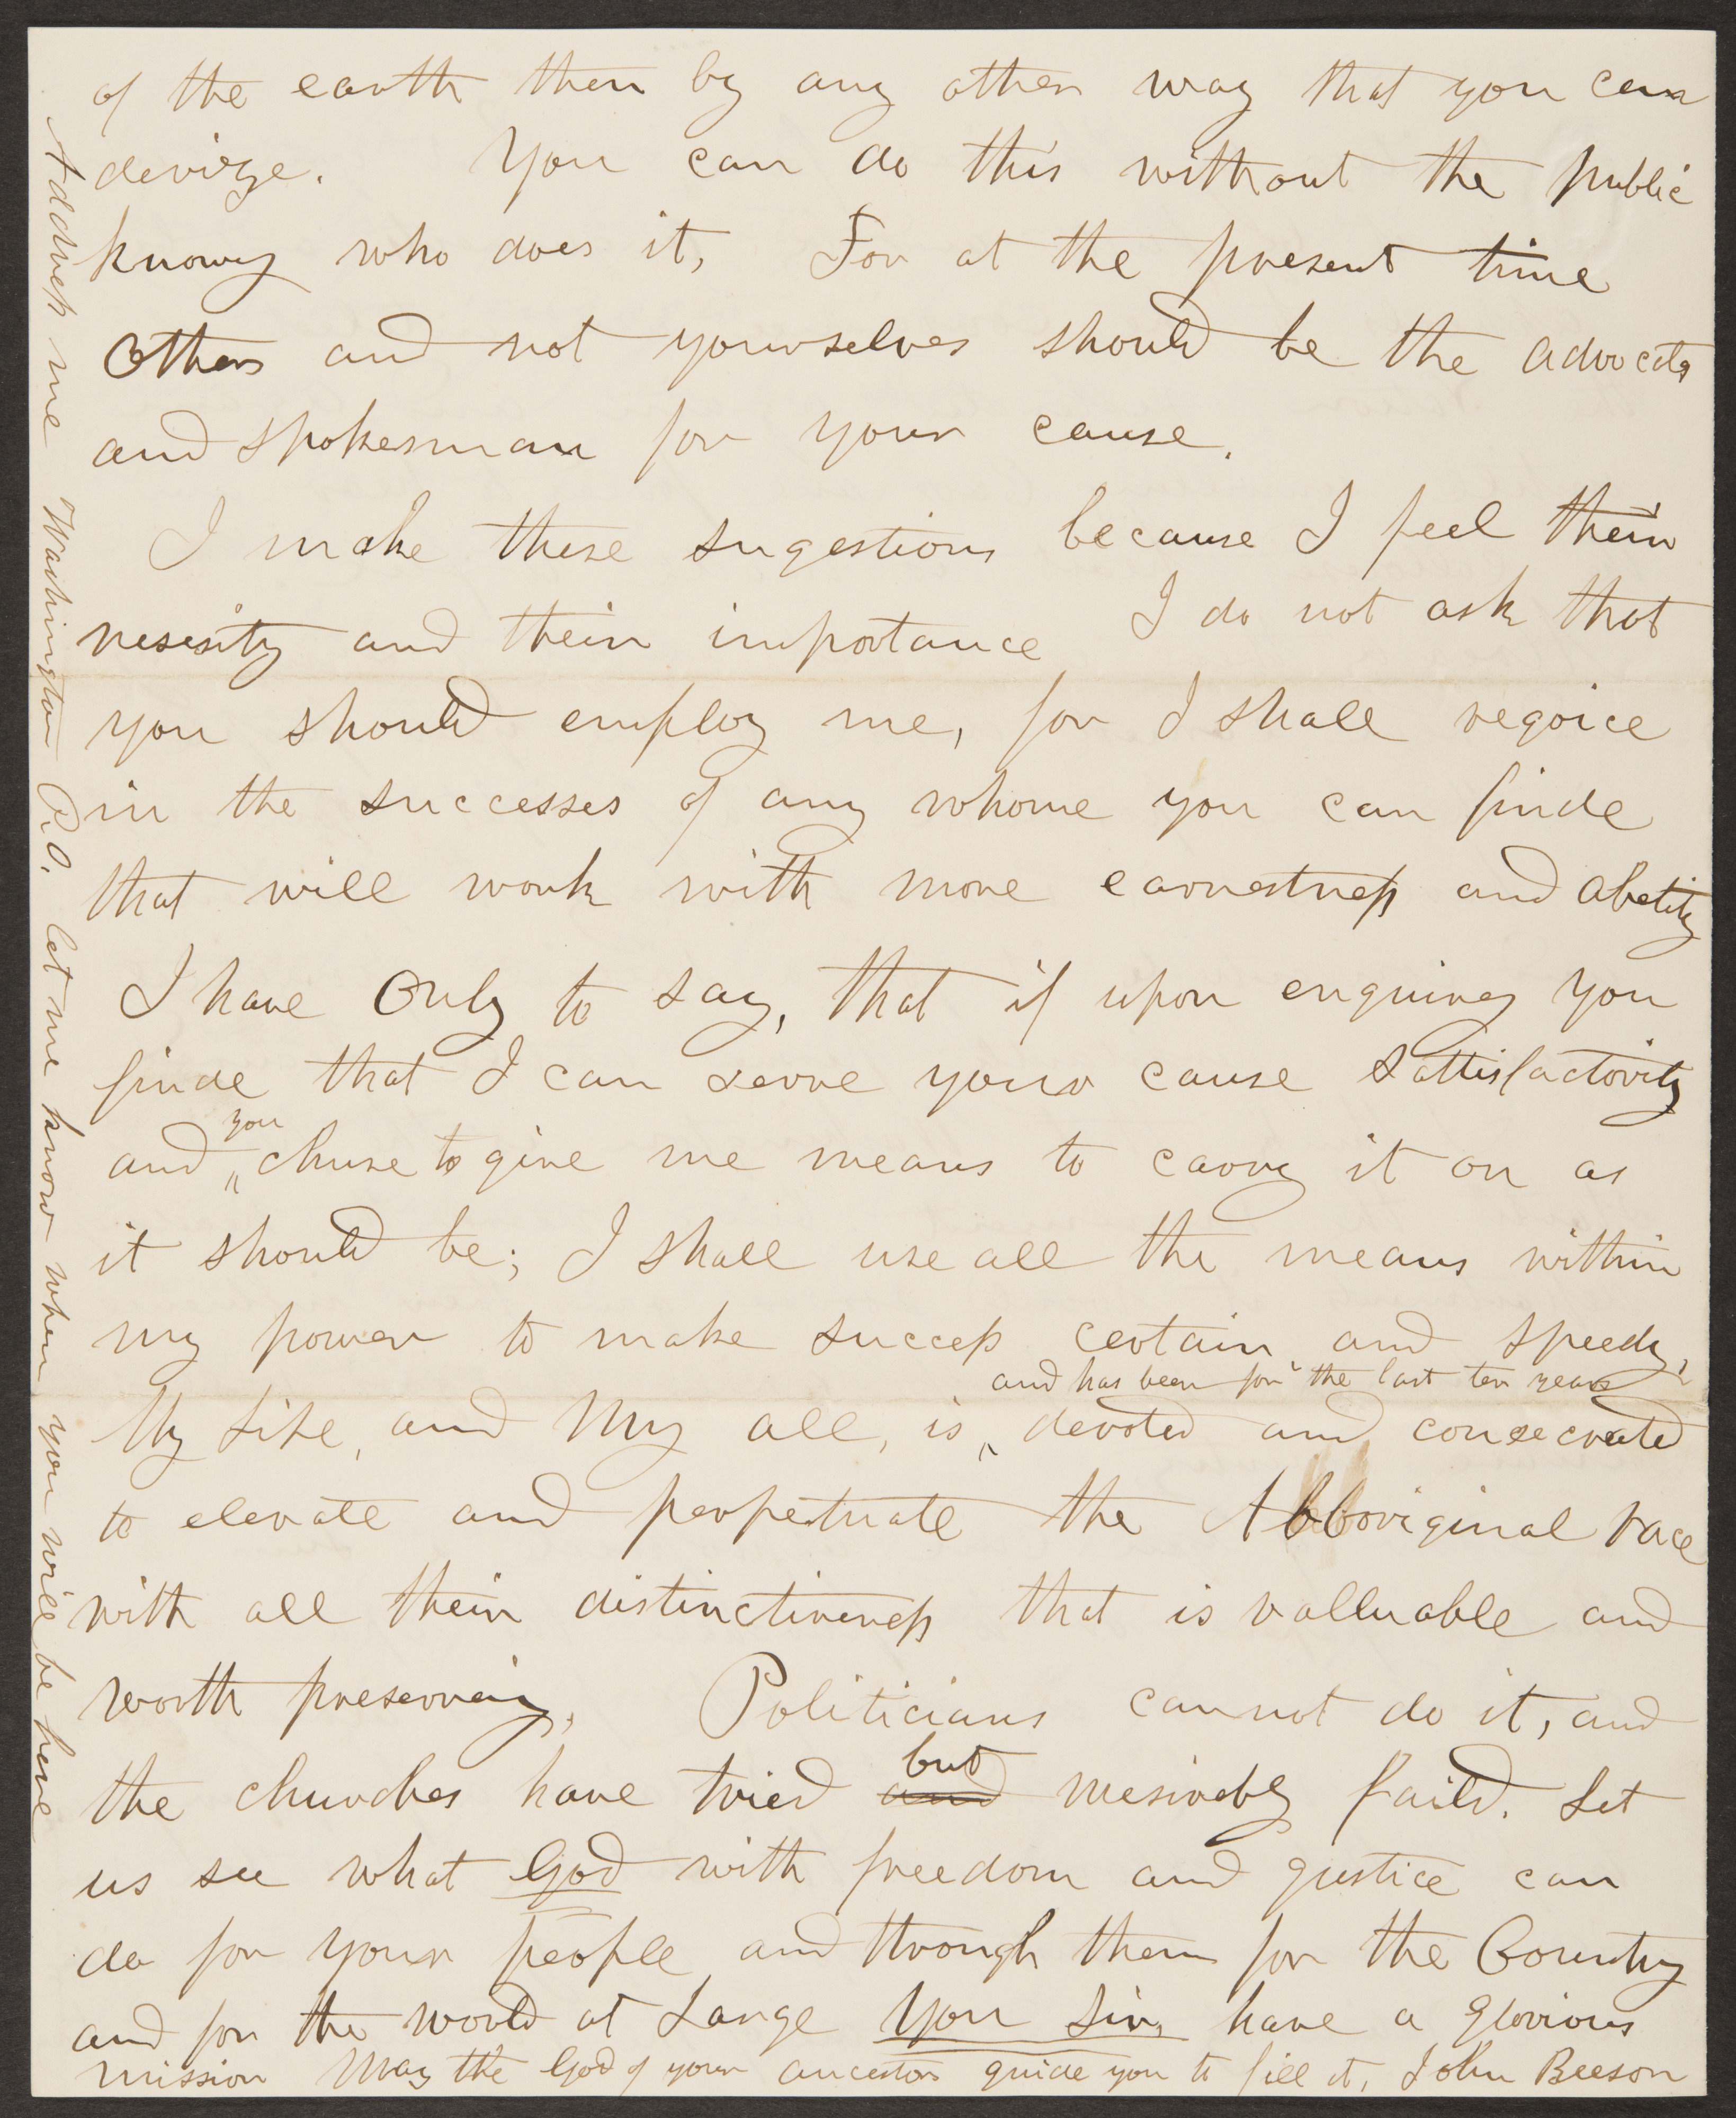 of the earth then by any other way that you can
devize. You can do this without the public
knowig who does it, For at the present time
Others and not yourselves should be the advocats
and spokesman for your cause.
I make these sugestions because I feel their
nesesity and their importance I do not ask that
you should employ me, for I shall regoice
in the successes of any whome you can finde
that will work with more earnestness and abelity
I have Only to say, that if upon enquirey you
finde that I can serve your cause Sattisfactority
and you chuse to give me means to carry it on as
it should be; I shall use all the means within
my power to make success certain and speedy,
and has been for the last ten years
My Life, and My all, is devoted and consecrated
to elevate and perpetuate the Abboriginal race
with all their distinctiveness that is valluable and
worth preserveing, Politicians cannot do it, and
the churches have tried and but meserably faild. Let
us see what God with freedom and justice can
do for your people and through them for the Country
and for the world at Large You Sir, have a glorious
mission May the God of your ancestors guide you to fill it, John Beeson
Address me Washington P.O. let me know when you will be here